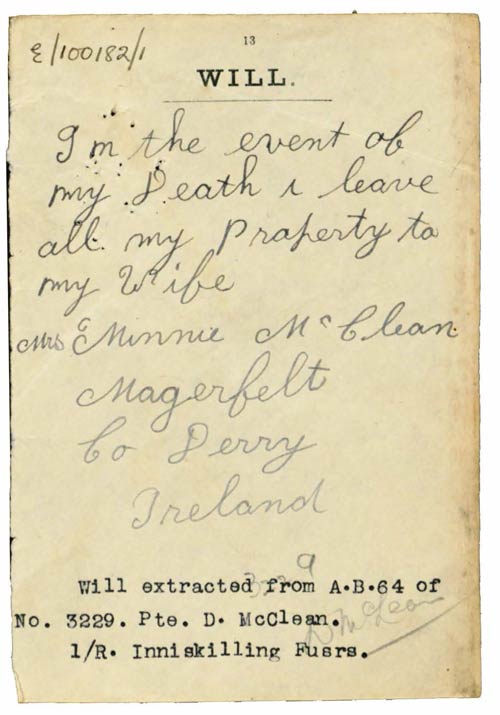 E/100182/1
13
WILL.
In the event of
my Death i leave
all my Property to
my Wife
Mrs Minnie McClean
Magerfelt
Co Derry
Ireland
Will extracted from A.B.64 of
No. 3229. Pte. D. McClean.
1/R. Inniskilling Fusrs.
D McClean